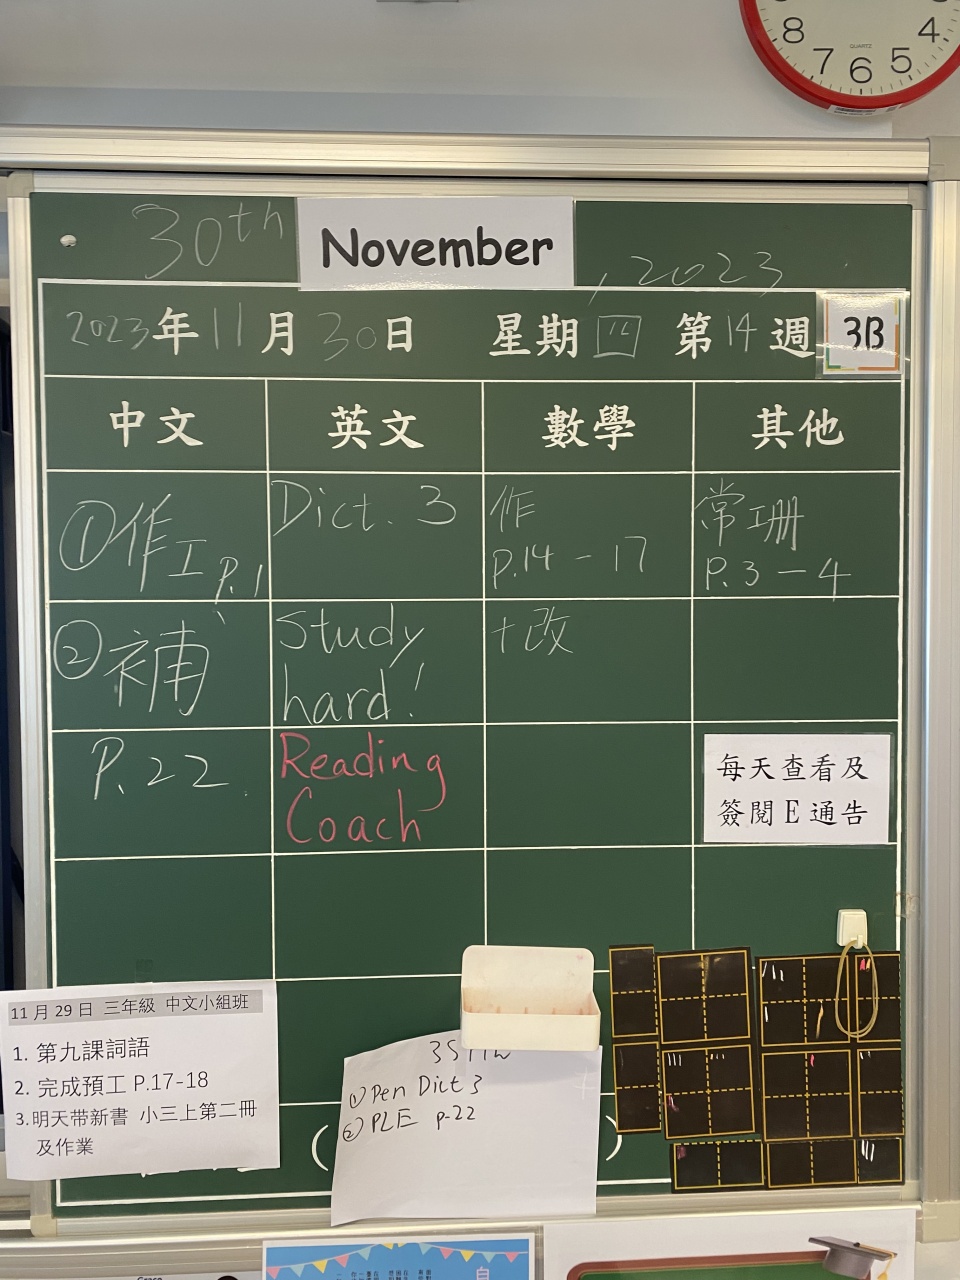 8 7 6 5 4
QUARTZ
30th November, 2023
2023年11月30日 星期四 第14週 3B
中文 英文 數學 其他
①作工 P.1 Dict. 3 作 P.14-17 常珊 P.3-4
②補 Study hard! +改
P.22. Reading Coach 每天查看及
簽閱E通告
11月29日 三年級 中文小組班
1. 第九課詞語
2. 完成預工 P.17-18
3.明天带新書 小三上第二冊
及作業
① Pen Dict 3
② PLE p.22
( )
Grace